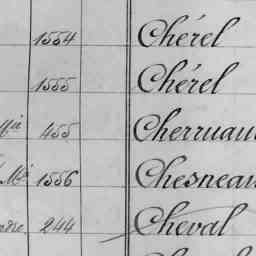 1554 Chérel
1555 Chérel
455 Cherruau
1556 Chesneau
244 Cheval